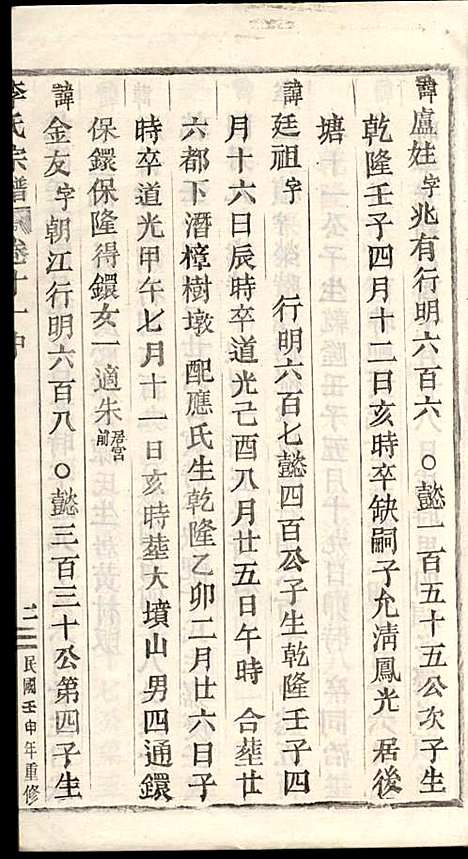 諱盧姓字兆有行明六百六○懿一百五十五公次子生
乾隆壬子四月十二日亥時卒缺嗣子允清鳳光 居後
塘
諱廷祖字 行明六百七懿四百公子生乾隆壬子四
月十六日辰時卒道光己酉八月廿五日午時 合塟廿
六都下潛樟樹墩 配應氏生乾隆乙卯二月廿六日子
時卒道光甲午七月十一日亥時塟大墳山 男四通鐶
保鐶保隆得鐶女一適朱居宮前
諱金友字朝江行明六百八○懿三百三十公第四子生
李氏宗譜 卷十一中 二 民國壬申年重修